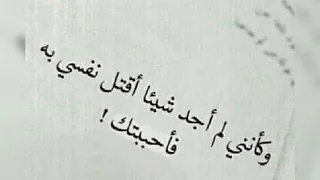 وكأنني لم أجد شيئا أقتل نفسي به
فأحببتك !